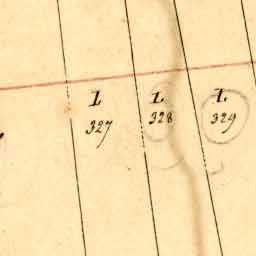 1 1 1
327 328 329